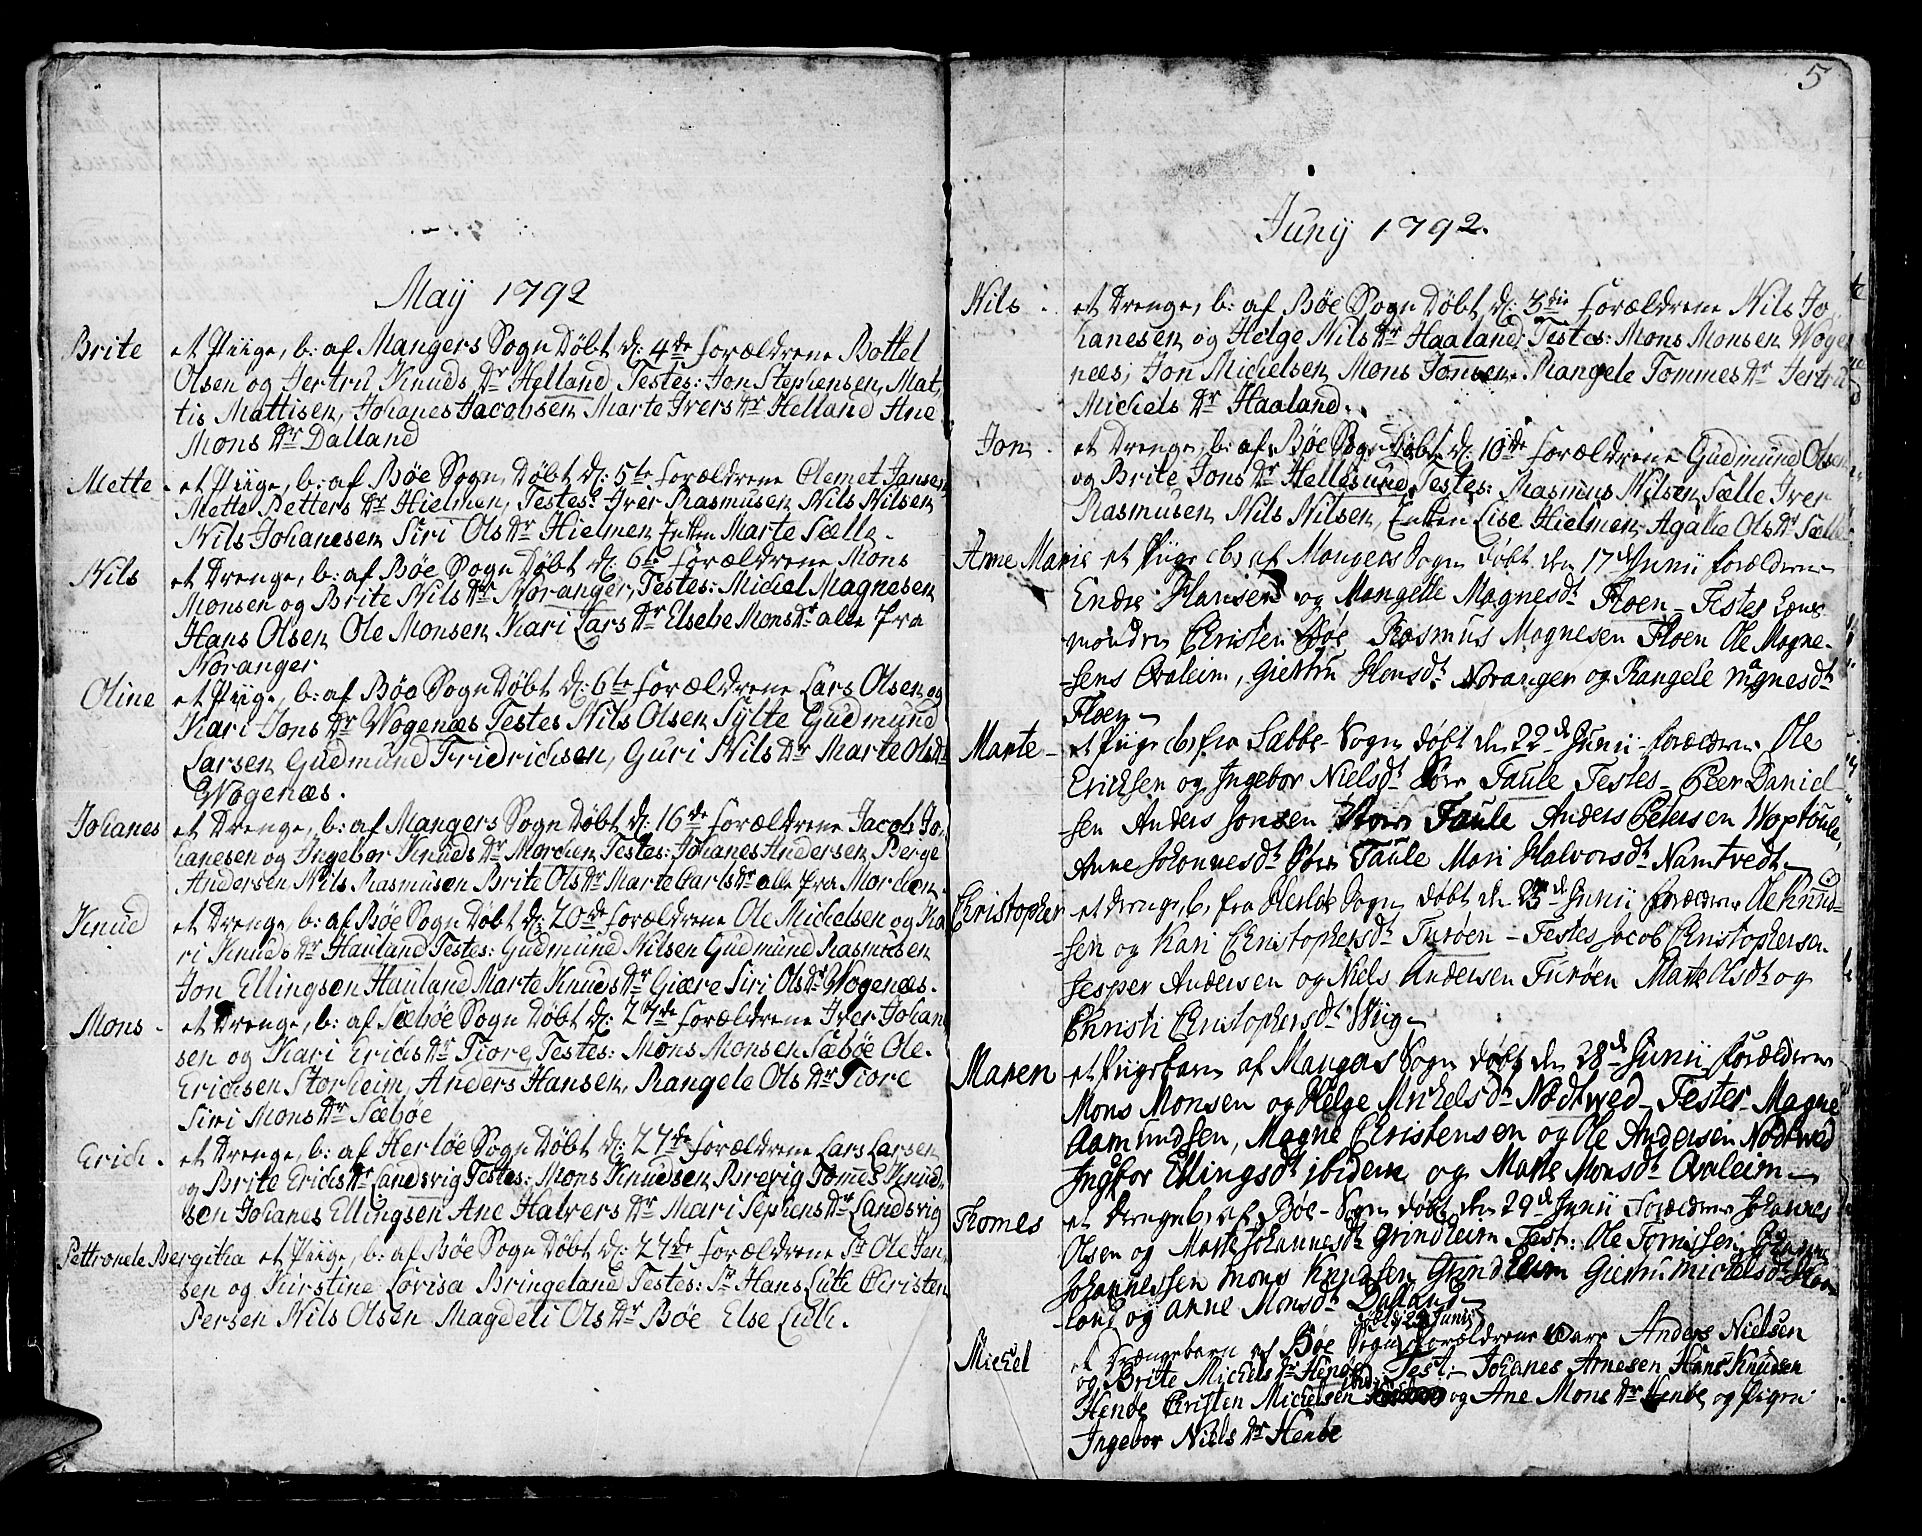 May 1792
Brite et Piige, b: af Mangers Sogn Døbt d: 4de forældrene Bottel
Olsen og Jertru Knuds Dr Helland Testes: Jon Stephensen, Mat,
tis Mattisen, Johanes Jacobsen Marte Ivers Dr Helland Ane
Mons Dr Dalland
Mette - et Piige, b: af Bøe Sogn Døbt d: 5te forældrene Clemet Jansen
Mette Petters Dr Hielmen, Testes: Iver Rasmusen Nils Nilsen
Nils Johanesen Siri Ols Dr Hielmen Enken Marte Sælle.
Nils et Drenge, b: af Bøe Sogn Døbt d: 6te forældrene Mons
Monsen og Brite Nils Dr Noranger, Testes: Michel Magnesen
Hans Olsen Ole Monsen Kari Lars Dr Elsebe Mons Dr alle fra
Noranger
Oline et Piige, b: af Bøe Sogn Døbt d: 6te forældrene Lars Olsen og
Kari Jons Dr Wogenæs Testes Nils Olsen Sylte Gudmund
Larsen Gudmund Fridrichsen, Guri Nils Dr Marte Ols Dr
Wogenæs.
Johanes et Drenge, b: af Mangers Sogn Døbt d: 16de forældrene Jacob Jo,
hanesen og Ingebor Knuds Dr Marchen Testes: Johanes Andersen Berge
Andersen Nils Rasmusen Brite Ols Dr Marte Carls Dr alle fra Morchen.
Knud et Drenge b: af Bøe Sogn Døbt d: 20de forældrene Ole Michelsen og Ka
ri Knuds Dr Hauland Testes: Gudmund Nilsen Gudmund Rasmusen
Jon Ellingsen Hauland Marte Knuds Dr Giære Siri Ols Dr Wogenæs.
Mons - et Drenge, b: af Sæbøe Sogn Døbt d: 27de forældrene Iver Johan
sen og Kari Erichs Dr Fiore, Testes: Mons Monsen Sæbøe Ole.
Erichsen Storheim, Anders Hansen, Rangele Ols Dr Fiore
Siri Mons Dr Sæbøe
Erich. et Drenge, b: af Herløe Sogn Døbt d: 27de forældrene Lars Larsen
og Brite Erichs Dr Landsvig Testes: Mons Knudsen Brevig Tomes Knud,
sen Johanes Ellingsen Ane Halvers Dr Mari Sephens Dr Landsvig
Pettronele Bergitha et Piige, b: af Bøe Sogn Døbt d: 27de forældrene Sr Ole Jen
sen og Kirstine Lovisa Bringeland Testes: Sr Hans Lute Christen
Persen Nils Olsen Magdeli Ols Dr Bøe Else Lute.
5
Juny 1792.
Nils . et Drenge, b: af Bøe Sogn Døbt d: 3die forældrene Nils Jo,
hanesen og Helge Nils Dr Haaland Testes: Mons Monsen Woge
næs, Jon Michelsen Mons Jonsen. Rangele Tommes Dr Jertru
Michels Dr Haaland.
Jon . et Drenge, b: af Bøe Sogn Døbt d: 10de forældrene Gudmund Olsen
og Brite Jons Dr Hellesund Testes: Rasmus Nilsen Sælle Iver
Rasmusen Nils Nilsen, Enken Lise Hielmen Agathe Ols Dr Sælle
Anne Marie et Piige b. af Mangers Sogn døbt den 17de Junii forældrene
Endre Hansen og Mangelle Magnesdt Floen - Testes
Christen Bøe Rasmus Magnesen Floen Ole Magne-
-sens Qvaleim, Giertru Hansdt Noranger og Rangele magnesdt
Floen -
Marte - et Piige b. fra Sæbbe-Sogn døbt den 22de Junii forældrene Ole
Ericksen og Ingebor Nielsdt Taule Testes - Peer Daniel
-sen Anders Jonsen Taule Anders Petersen
Anne Johannesdt Taule Mari Halvorsdt Namtvedt -
Christopher et drenge b. fra Herløe Sogn døbt den 23de Junii forældrene Ole Knud-
-sen og Kari Christophersdt Turøen - Testes Jacob Christophersen
Jesper Andersen og Niels Andersen Turøen Marte Olsdt og
Christi Christophersdt Wiig -
Maren et Piigebarn af Mangers Sogn døbt den 28de Junii forældrene
Mons Monsen og Helge Mickelsdt Nødtwed - Testes - Magne
Aamundsen, Magne Christensen og Ole Andersen Nødtwed
Ingbor Ellingsdt ibidem og Marte Monsdt Qvaleim -
Thomes et drenge b. af Bøe-Sogn døbt den 29de Junii Forældrene Johannes
Olsen og Marte Johannesdt Grindheim Test: Ole Tomissen
Johannessen mons Knudsen Grindheim Giertru mickelsdt
land og anne Monsdt Dalland -
døbt d 29 Junii
Michel et Drængebarn af Bøe Sogn, forældrene Ware Anders Nielsen
og Brite Michels Dr Henøe Test: - Johanes Arnesen Hans Knudsen
Henøe Christen Michelsen og Ane Mons Dr Henøe og Pigen
Ingebor Niels Dr Henøe